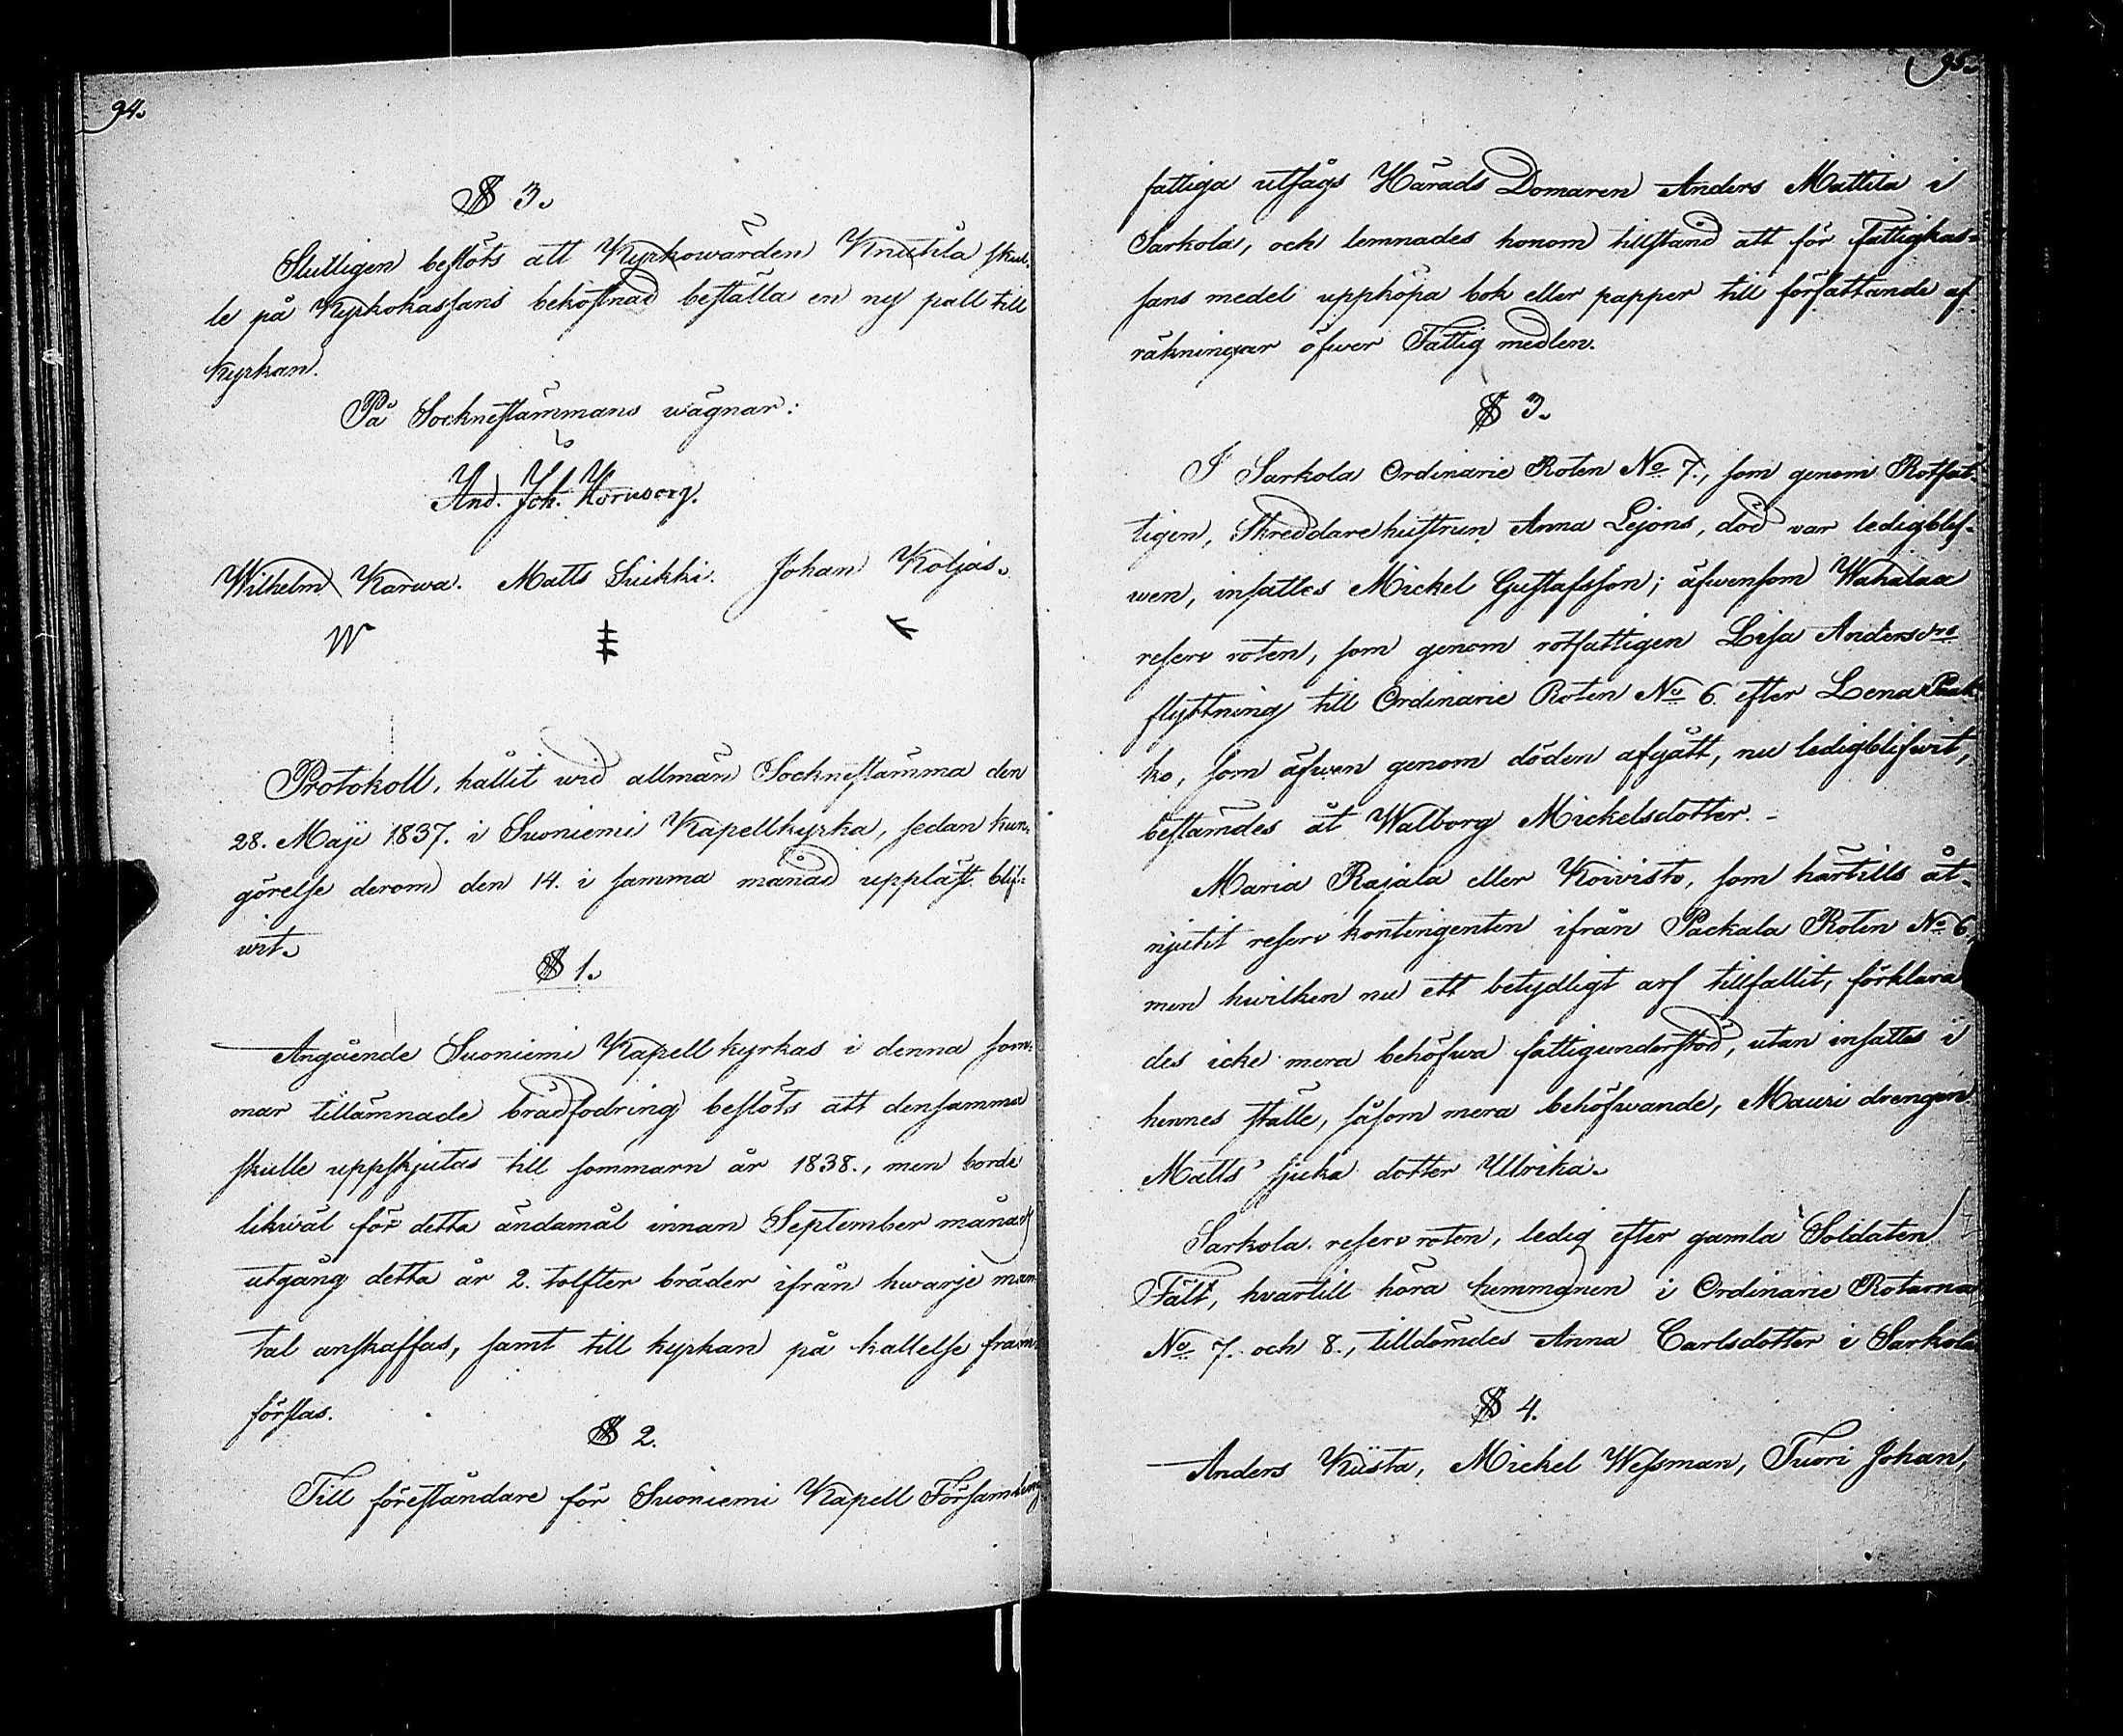 94.
§ 3.
Slutligen beslöts att Kyrkowärden Knutila skul-
le på Kyrkokassans bekostnad beställa en ny pall till
kyrkan.
På Socknestämmans wägnar:
And. Joh. Hornborg.
Wilhelm Karwa. Matts Suikki. Johan Koljas.
W
Protokoll, hållit wid allmän Socknestämma den
28. Maji 1837. i Suoniemi Kapellkyrka, sedan kun-
görelse derom den 14. i samma månad uppläst blif-
wit.
§ 1.
Angående Suoniemi Kapellkyrkas i denna som-
mar tillämnade brädfodring beslöts att densamma
skulle uppskjutas till sommarn år 1838., men borde
likwäl för detta ändamål innan September månads
utgång detta år 2. tolfter bräder ifrån hwarje man-
tal anskaffas, samt till kyrkan på kallelse fram-
förslas.
§ 2.
Till föreståndare för Suoniemi Kapell Församlings
95.
fattiga utsågs Härads Domaren Anders Mattila i
Sarkola, och lemnades honom tillstånd att för Fattigkas-
sans medel uppköpa bok eller papper till författande af
räkningar öfwer Fattig medlen.
§ 3.
I Sarkola Ordinarie Roten No 7., som genom Rotfat-
tigen, Skreddarehustrun Anna Lejons, död var ledigblif-
wen, insattes Mickel Gustafsson; äfwensom Wahalaa
reserv roten, som genom rotfattigen Lisa Andersdrs
flyttning till Ordinarie Roten No 6. efter Lena Paak-
ko, som äfwen genom döden afgått, nu ledigblifwit,
bestämdes åt Walborg Mickelsdotter. -
Maria Rajala eller Koivisto, som härtills åt-
njutit reserv kontingenten ifrån Packala Roten No 6,
men hwilken nu ett betydligt arf tillfallit, förklara-
des icke mera behöfwa fattigunderstöd, utan insattes i
hennes ställe, såsom mera behöfwande, Mauri drengen
Matts' sjuka dotter Ulrika.
Sarkola reserv roten, ledig efter gamla Soldaten
Fält, hvartill höra hemmanen i Ordinarie Rotarna
No 7. och 8., tilldömdes Anna Carlsdotter i Sarkola
§ 4.
Anders Küsta, Mickel Wessman, Tuori Johan,